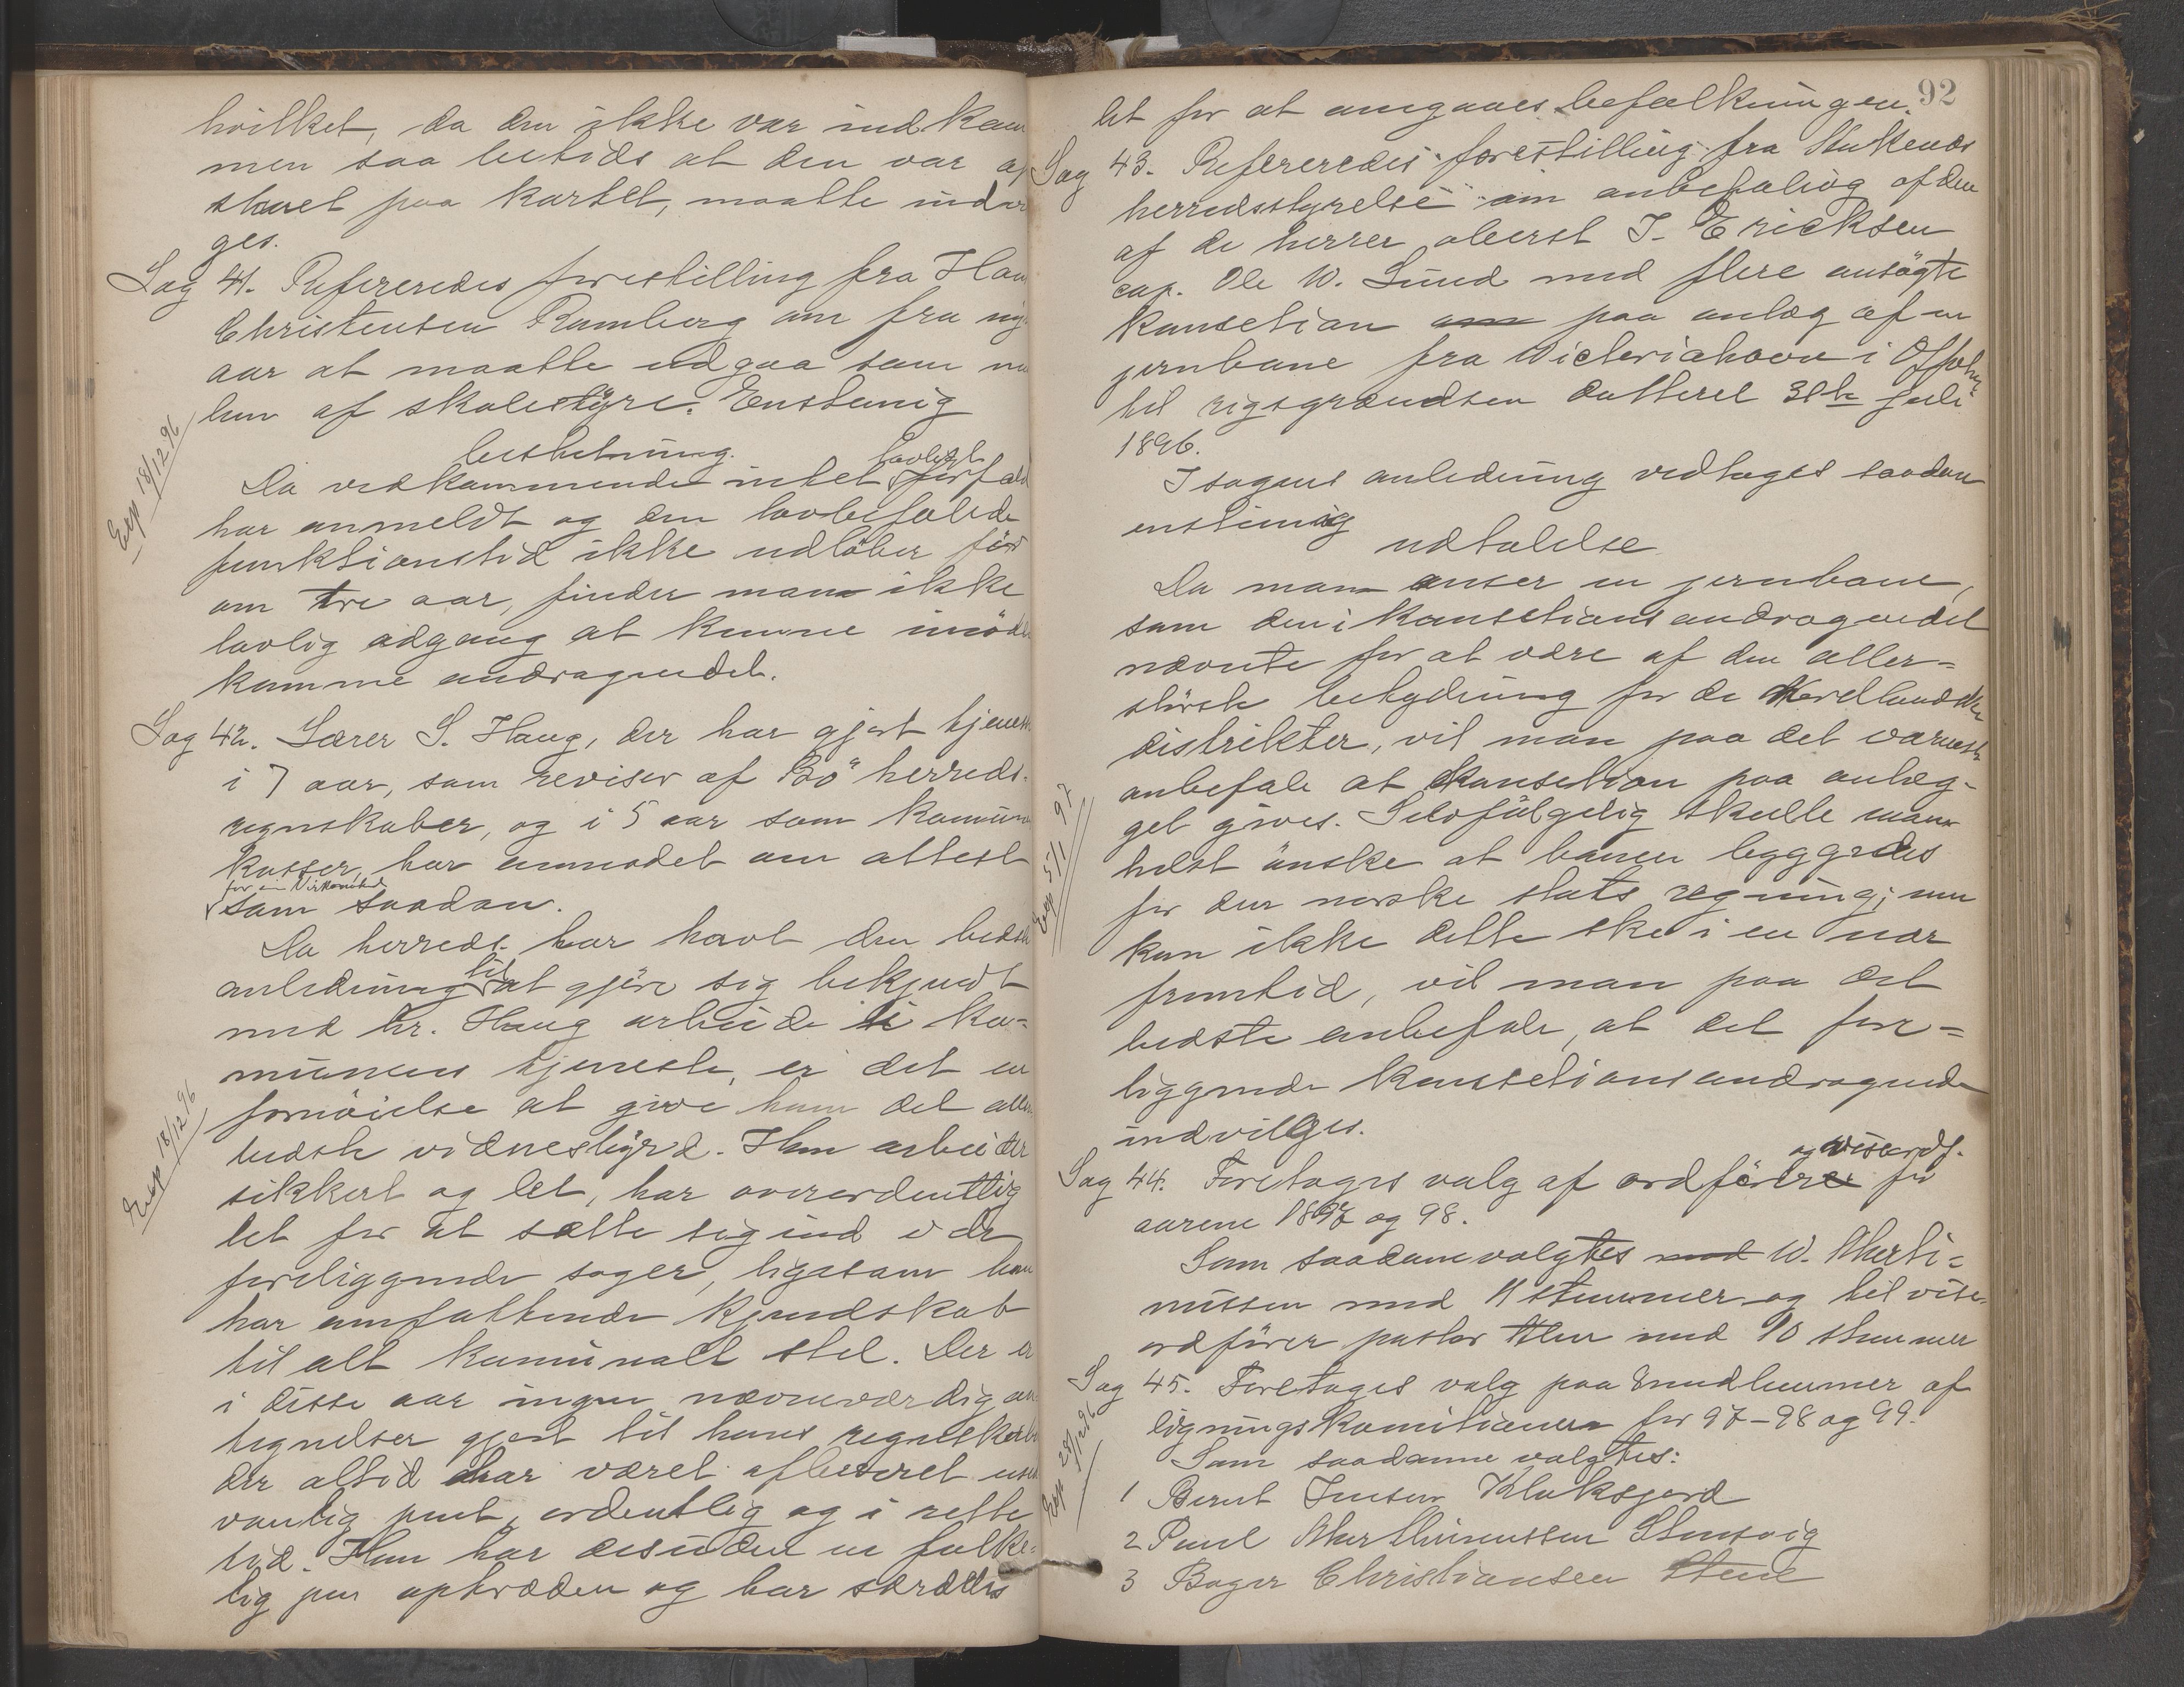 hvilket, da den ikke var indkom
men saa betids at den var op
skrevet paa kartet, maatte
ges.
Sag 41. Refereredes forestilling fra Hans
Christensen Ramberg om fra nyt
aar at maatte udgaa som
lem af skolestyre. Enstemig
beslutning.
Da vedkommende intet lovligt forfald
har anmeldt og den lovbefalede
funktionstid ikke udløber før
om tre aar, finder man ikke
lovlig adgang at kunne imøde
komme andragendet.
Exp 18/12 96
Sag 42. Lærer S. Haug, der har gjort tjeneste
i 7 aar, som revisor af Bø herreds-
regnskaber, og i 5 aar som kommune
kasser, har anmodet om attest
for sin Virksomhed
som saadan.
Da herredst. har havt den bedste
anledning til at gjøre sig bekjendt
med hr. Haug arbeide i ko=
munens tjeneste, er det en
fornøielse at give ham det aller
bedste vidnesbyrd. Han arbeider
sikkert og let, har overordentlig
let for at sætte sig ind i de
foreliggende sager, ligesom han
har omfattende kjendskab
til alt kommunalt stel. Der er
i disse aar ingen nævneværdig an
tegnelser gjort til hans regnskaber
der altid har været afleveret
vanlig pent, ordentlig og i rette
tid. Han har desuden en folke=
lig pen optræden og har særdeles
Exp 18/12 96
92
let for at omgaaes befolkningen.
Sag 43. Refereredes forestilling fra Ankenes
herredsstyrelse om anbefaling af den
af de herrer oberst J. Ericksen
cap. Ole W. Lund med flere ansøgte
konsetion om paa anlæg af en
jernbane fra Victoriahavn i Offoten
til rigsgrændsen datteret 30te juli
1896.
I sagens anledning vedtoges saadan
enstemig
udtalelse
Da man anser en jernbane,
som den i konsetions andragendet
nævnte for at være af den aller=
største betydning for de Nordlandske
distrikter, vil man paa det varmeste
anbefale at konsetion paa anlæg-
get gives. Selvfølgelig skulle man
helst ønske at banen byggedes
for den norske stats regning; men
kan ikke dette ske i en nær
fremtid, vil man paa det
bedste anbefale, at det fore=
liggende konsetions andragende
indvilges.
Exp 5/1 97
Sag 44. Foretoges valg af ordfører og viseordf. for
aarene 1897 og 98.
Som saadane valgtes med W. Marti=
nussen med 11 stemmer og til vise
ordfører pastor med 10 stemmer
Sag 45. Foretoges valg paa medlemmer af
ligningskomitionen for 97-98 og 99.
Som saadanne valgtes:
Exp 28/12 96
1 Bernt Jensen Klaksjord
2 Paul Marthinussen Steensvig
3 Boger Christiansen Steene